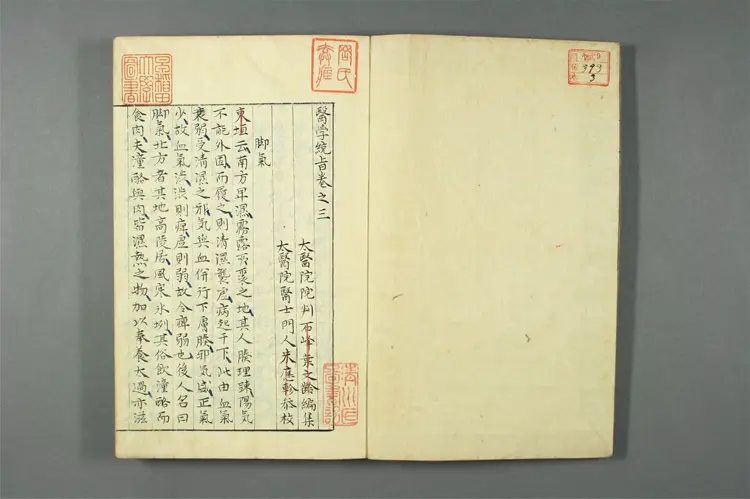 醫学統旨卷之三
太醫院院判石峰葉文齡編集
太醫院醫士門人朱應軫恭校
脚氣
東垣云南方卑濕霧露所聚之地其人腠理踈陽気
不能外固而履之則清濕襲虛病起于下此由血氣
衰弱受清濕之邪気與血併行下膚腠邪気盛正氣
少故血氣澁澁則痺虛則弱故令痺弱也後人名曰
脚氣北方者其地高陵居風寒氷冽其俗飲潼酪而
食肉夫潼酪與肉皆濕熱之物加以奉養太過亦滋
岡氏
393
3